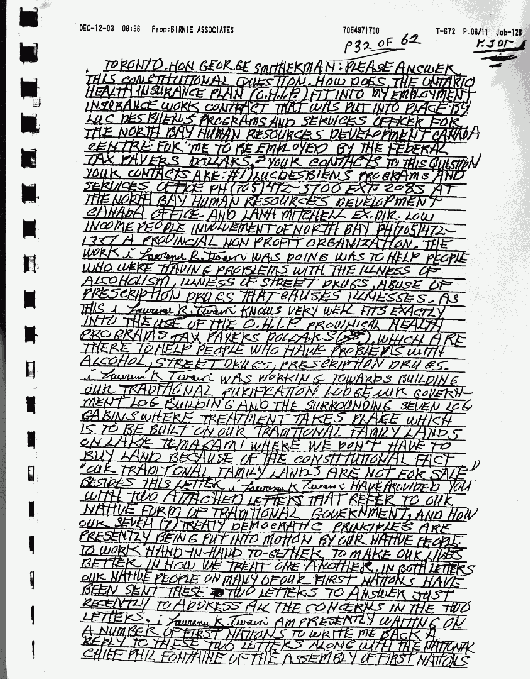 DEC-12-03 08:56 From:BIRNIE ASSOCIATES 7054971700 T-672 P.08/11 Job-128
P32 OF 62
TORONTO. HON GEORGE SMITHERMAN: PLEASE ANSWER
THIS CONSTITUTIONAL QUESTION. HOW DOES THE ONTARIO
HEALTH INSURANCE PLAN (O.H.I.P.) FIT INTO MY EMPLOYMENT
INSURANCE WORK CONTRACT THAT WAS PUT INTO PLACE BY
LUC DESBIENS PROGRAMS AND SERVICES OFFICER FOR
THE NORTH BAY HUMAN RESOURCES DEVELOPMENT CANADA
CENTRE FOR ME TO BE EMPLOYED BY THE FEDERAL
TAX PAYERS DOLLARS? YOUR CONTACTS TO THIS QUESTION
YOUR CONTACTS ARE #1) LUC DESBIENS PROGRAMS AND
SERVICES OFFICE PH (705) 472-3700 EXT 2085 AT
THE NORTH BAY HUMAN RESOURCES DEVELOPMENT
CANADA OFFICE. AND LANA MITCHELL EX. DIR. LOW
INCOME PEOPLE INVOLVEMENT OF NORTH BAY PH (705) 472-
1337 A PROVINCIAL NON PROFIT ORGANIZATION. THE
WORK i WAS DOING WAS TO HELP PEOPLE
WHO WERE HAVING PROBLEMS WITH THE ILLNESS OF
ALCOHOLISM, ILLNESS OF STREET DRUGS, ABUSE OF
PRESCRIPTION DRUGS THAT CAUSES ILLNESSES. AS
THIS i KNOWS VERY WELL FITS EXACTLY
INTO THE USE OF THE O.H.I.P. PROVINCIAL HEALTH
PROGRAMS TAX PAYERS DOLLARS WHICH ARE
THERE TO HELP PEOPLE WHO HAVE PROBLEMS WITH
ALCOHOL, STREET DRUGS, PRESCRIPTION DRUGS.
i WAS WORKING TOWARDS BUILDING
OUR TRADITIONAL PURIFICATION LODGE OUR GOVERN-
MENT LOG BUILDING AND THE SURROUNDING SEVEN LOG
CABINS WHERE TREATMENT TAKES PLACE WHICH
IS TO BE BUILT ON OUR TRADITIONAL FAMILY LANDS
ON LAKE TEMAGAMI WHERE WE DON'T HAVE TO
BUY LAND BECAUSE OF THE CONSTITUTIONAL FACT
"OUR TRADITIONAL FAMILY LANDS ARE NOT FOR SALE"
BESIDES THIS LETTER, i HAVE PROVIDED YOU
WITH TWO ATTACHED LETTERS THAT REFER TO OUR
NATIVE FORM OF TRADITIONAL GOVERNMENT, AND HOW
OUR SEVEN (7) TREATY DEMOCRATIC PRINCIPLES ARE
PRESENTLY BEING PUT INTO MOTION BY OUR NATIVE PEOPLE
TO WORK HAND-IN-HAND TO-GETHER TO MAKE OUR LIVES
BETTER IN HOW WE TREAT ONE ANOTHER. IN BOTH LETTERS
OUR NATIVE PEOPLE ON MANY OF OUR FIRST NATIONS HAVE
BEEN SENT THESE TWO LETTERS TO ANSWER JUST
RECENTLY TO ADDRESS ALL THE CONCERNS IN THE TWO
LETTERS. i AM PRESENTLY WAITING ON
A NUMBER OF FIRST NATIONS TO WRITE ME BACK A
REPLY TO THESE TWO LETTERS ALONG WITH THE NATIONAL
CHIEF PHIL FONTAINE OF THE ASSEMBLY OF FIRST NATIONS